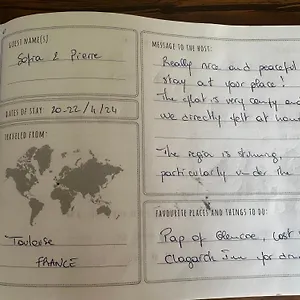 GUEST NAME(S)
Sofia & Pierre
DATES OF STAY: 20-22/4/24
TRAVELED FROM:
Toulouse
FRANCE
MESSAGE TO THE HOST:
Really nice and peaceful
stay at your place!
The flat is very comfy and
we directly felt at home
The region is stunning,
particularly under the
FAVOURITE PLACES AND THINGS TO DO:
Pap of Glencoe, Lost
Clachaig Inn for